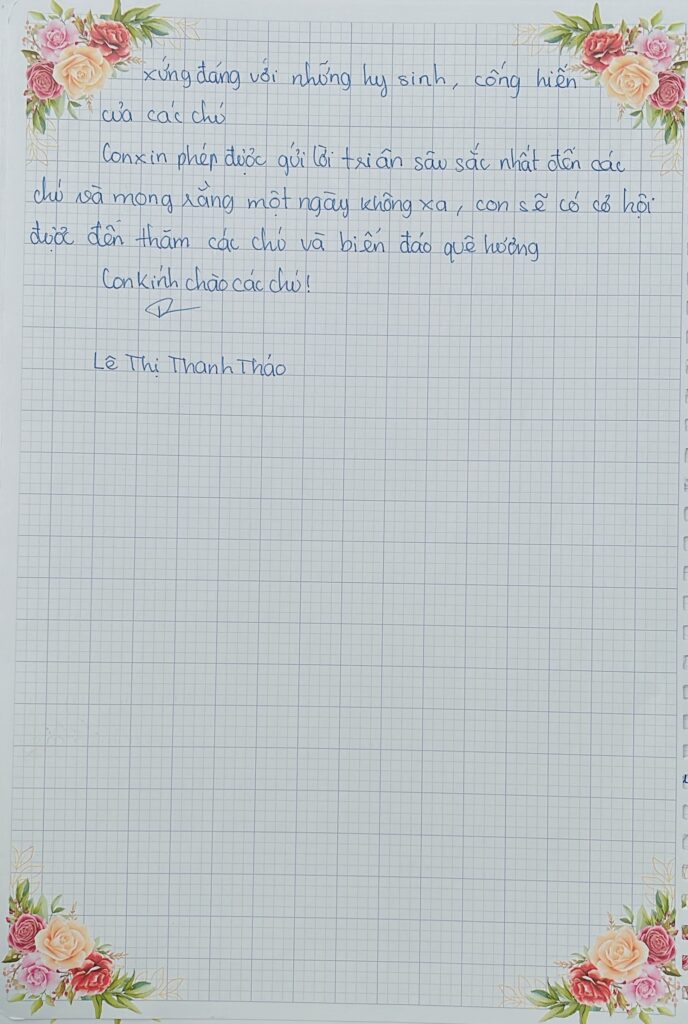 xứng đáng với những hy sinh, cống hiến
của các chú
Con xin phép được gửi lời tri ân sâu sắc nhất đến các
chú và mong rằng một ngày không xa, con sẽ có cơ hội
được đến thăm các chú và biển đảo quê hương
Con kính chào các chú!
Lê Thị Thanh Thảo